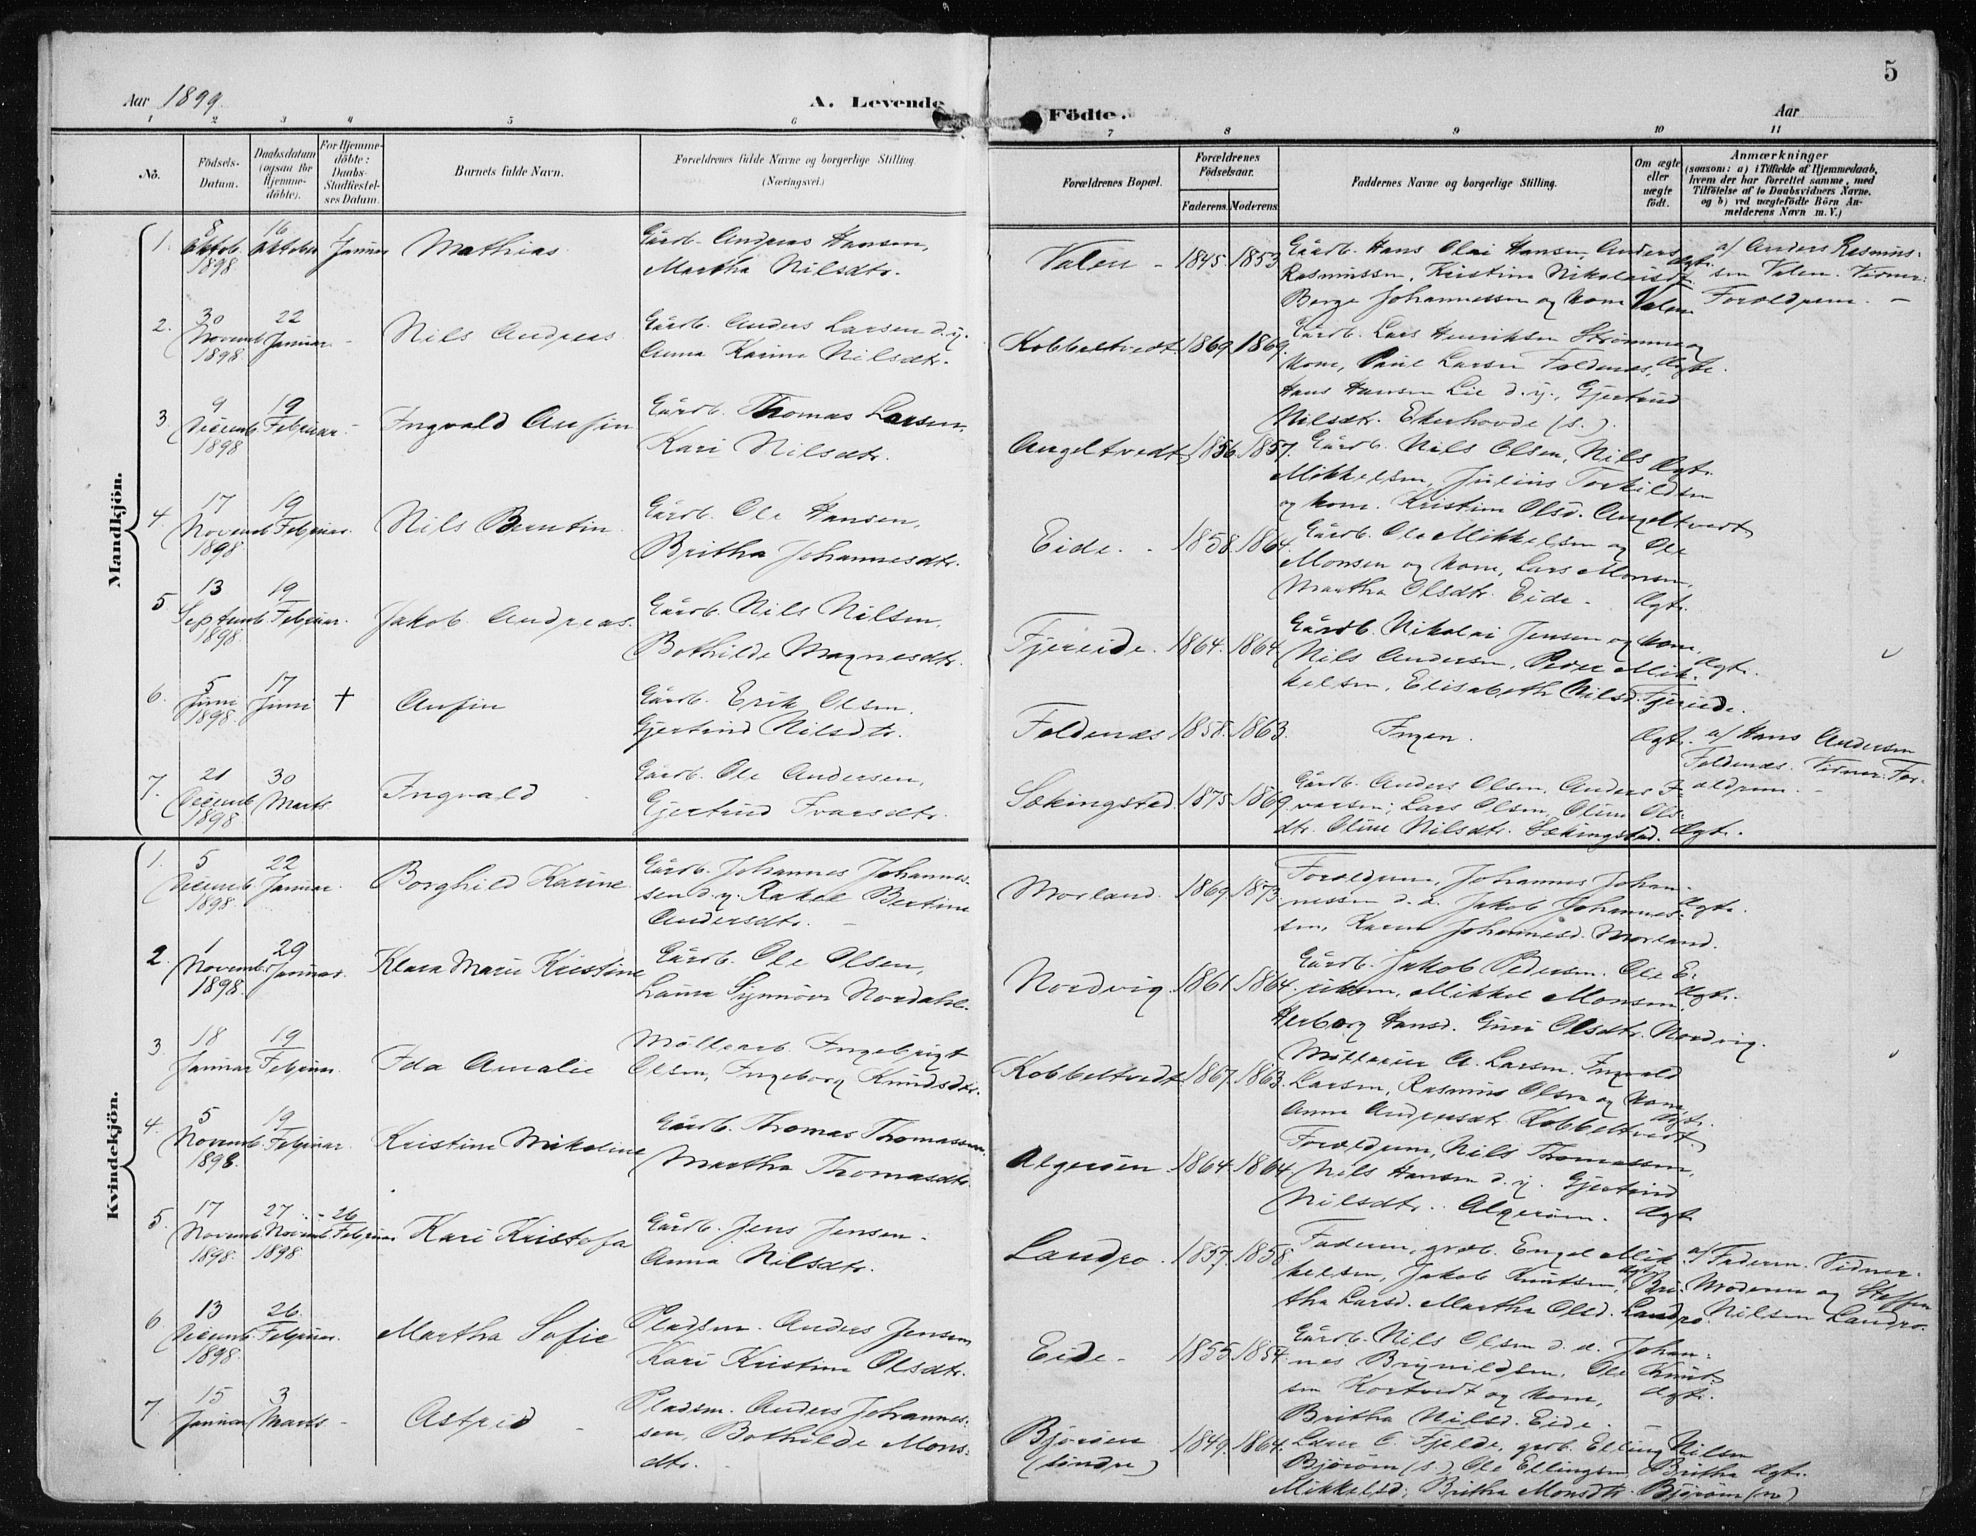 Aar 1899
A. Levende
Födte.
Aar
5
1 2 3 4 5 6 7 8 9 10 11
No.
Födsels-
Datum.
Daabsdatum
(ogsaa for
Hjemme-
döbte).
For Hjemme-
döbte:
Daabs-
Stadfæstel-
ses Datum.
Barnets fulde Navn.
Forældrenes fulde Navne og borgerlige Stilling.
(Næringsvei.)
Forældrenes Bopæl.
Forældrenes
Födselsaar.
Faderens.
Moderens.
Faddernes Navne og borgerlige Stilling.
Om ægte
eller
uægte
födt.
Anmærkninger
(saasom: a) i Tilfælde af Hjemmedaab,
hvem der har forrettet samme, med
Tilföielse af to Daabsvidners Navne,
og b) ved uægtefödte Börn An-
melderens Navn m. V.)
Mandkjön.
1. 8 Oktob. 1898 16 Oktober Januar Mathias
Gårdb. Andreas Hansen,
Martha Nilsdtr.
Valen - 1845 1853
Gårdb. Hans Olai Hansen, Anders
Rasmussen, Kristine Nikolaisd.
Berge Johannessen og kone Valen
Ægte.
a/ Anders Rasmus-
sen Valen. Vidner:
Forældrene. -
2. 30 Novemb. 1898 22 Januar - Nils Andreas
Gårdb. Anders Larsen d.y.
Anna Karine Nilsdtr.
Kobbeltvedt 1869 1869.
Gårdb. Lars Henriksen Strömme og
kone, Paul Larsen Foldenæs,
Hans Hansen Lie d.y., Gjertrud
Nilsdtr. Ekerhovde (s.).
Ægte.
3 9 Decemb. 1898 19 Februar - Ingvald Anfin
Gårdb. Thomas Larsen,
Kari Nilsdtr.
Angeltvedt 1856 1857.
Gårdb. Nils Olsen, Nils
Mikkelsen, Julius Torkildsen
og kone. Kristine Olsd. Angeltvedt
Ægte.
4 17 Novemb. 1898 19 Februar. Nils Berntin.
Gårdb. Ole Hansen,
Britha Johannesdtr.
Eide. - 1858. 1864.
Gårdb. Ole Mikkelsen og Ole
Monsen og kone, Lars Monsen,
Martha Olsdtr. Eide -
Ægte.
5 13 Septemb. 1898. 19 Februar. Jakob Andreas.
Gårdb. Nils Nilsen,
Bothilde Magnesdtr.
Fjereide. 1864. 1864
Gårdb. Nikolai Jensen og kone,
Nils Andersen, Peder Mik-
kelsen, Elisabeth Nilsd. Fjereide.
Ægte.
6. 5 Juni 1898. 17 Juni † Anfin
Gårdb. Erik Olsen.
Gjertrud Nilsdtr.
Foldenæs 1858. 1863.
Ingen.
Ægte.
a/ Hans Andersen
Foldenæs. Vidner: For-
ældrene. -
7. 21 Decemb. 1898 30 Marts. Ingvald
Gårdb. Ole Andersen,
Gjertrud Ivarsdtr.
Sækingstad. 1875. 1869.
Gårdb. Anders Olsen, Anders I-
varsen, Lars Olsen, Oline Ols-
dtr. Oline Nilsdtr. Sækingstad.
Ægte.
Kvindekjön.
1. 5 Decemb. 1898. 22 Januar. Borghild Karine
Gårdb. Johannes Johannes-
sen d.y. Rakel Bertine
Andersdtr. -
Morland. 1869. 1873.
Forældrene, Johannes Johan-
nessen d.æ. Jakob Johannes-
sen, Karen Johannesd. Morland.
Ægte.
2. 1 Novemb. 1898. 29 Januar. Klara Marie Kristine
Gårdb. Ole Olsen,
Laura Synnöve Nordahl.
Nordvig. 1861 1864.
Gårdb. Jakob Pedersen. Ole E-
riksen, Mikkel Monsen,
Herborg Hansd. Guri Olsdtr. Nordvig.
Ægte.
3. 18 Januar 19 Februar. Ida Amalie
Möllearb. Ingebrigt
Olsen, Ingeborg Knudsdtr.
Kobbeltvedt 1867. 1863.
Möllerier A. Larsen. Ingvald
Larsen, Rasmus Olsen og kone,
Anna Andersdtr. Kobbeltvedt
Ægte.
4. 5 Novemb. 1898. 19 Februar. Kristine Nikoline
Gårdb. Thomas Thomassen,
Martha Thomasdtr.
Algeröen. 1864. 1864
Forældrene, Nils Thomassen,
Nils Hansen d.y. Gjertrud
Nilsdtr. Algeröen.
Ægte
5. 17 Novemb. 1898. 27 Novemb. 1898 26 Februar Kari Kristofa
Gårdb. Jens Jensen.
Anna Nilsdtr.
Landro. 1857. 1858
Faderen, grdb. Engel Mik-
kelsen, Jakob Knutsen, Bri-
tha Larsd. Martha Olsd. Landro
Ægte
a/ Faderen. Vidner:
Moderen og Steffen
Nilsen Landro.
6. 13 Decemb. 1898. 26. Februar. Martha Sofie
Pladsm. Anders Jensen
Kari Kristine Olsdtr.
Eide - 1855. 1854.
Gårdb. Nils Olsen d.æ. Johan-
nes Brynildsen, Ole Knut-
sen Kortvedt og kone,
Britha Nilsd. Eide. -
Ægte.
7. 15 Januar 3 Marts - Astrid -
Pladsm. Anders Johannes-
sen, Bothilde Mons-
dtr.
Björöen
(söndre)
1849. 1864.
Fjelde, grdb. Elling Nilsen
Björöen (s.) Ole Ellingsen, Britha
Mikkelsd; Britha Monsdtr. Björöen (n)
Ægte.